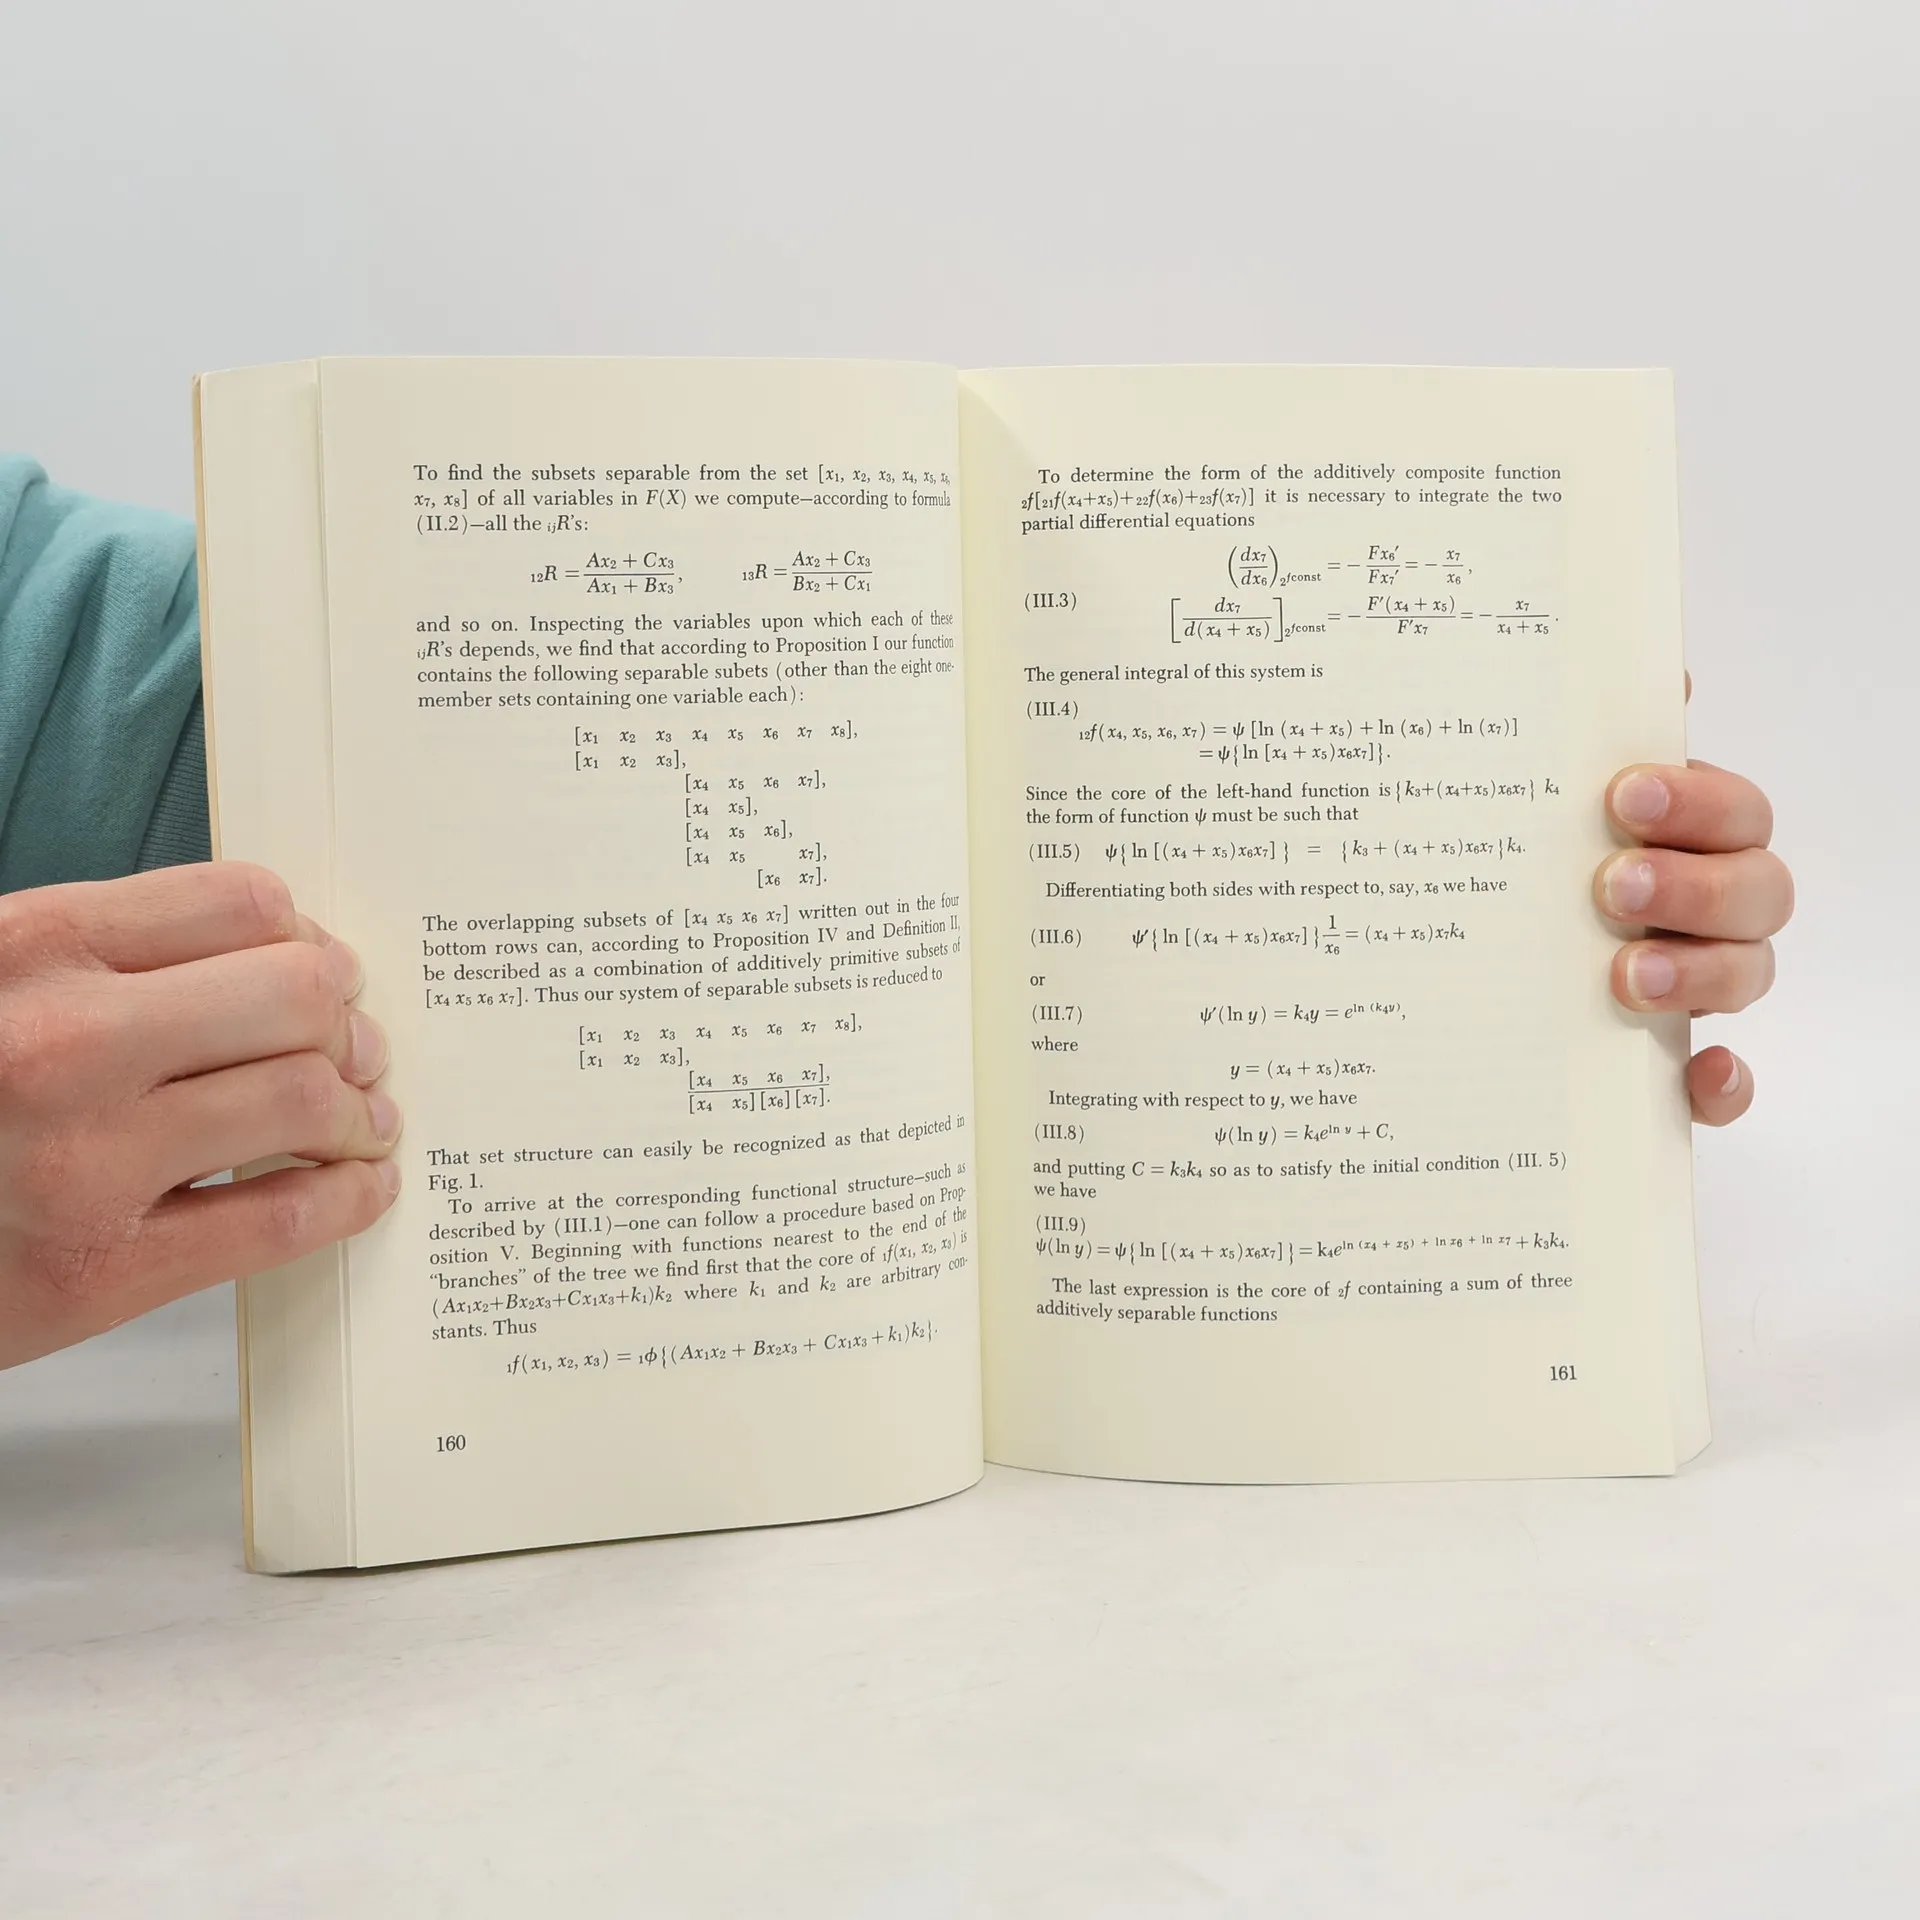 To find the subsets separable from the set [x₁, x₂, x₃, x₄, x₅, x₆,
x₇, x₈] of all variables in F(X) we compute—according to formula
(II.2)—all the ᵢⱼR's:
₁₂R = (Ax₂ + Cx₃)/(Ax₁ + Bx₃), ₁₃R = (Ax₂ + Cx₃)/(Bx₂ + Cx₁)
and so on. Inspecting the variables upon which each of these
ᵢⱼR's depends, we find that according to Proposition I our function
contains the following separable subets (other than the eight one-
member sets containing one variable each):
[x₁ x₂ x₃ x₄ x₅ x₆ x₇ x₈],
[x₁ x₂ x₃],
[x₄ x₅ x₆ x₇],
[x₄ x₅],
[x₄ x₅ x₆],
[x₄ x₅ x₇],
[x₆ x₇].
The overlapping subsets of [x₄ x₅ x₆ x₇] written out in the four
bottom rows can, according to Proposition IV and Definition II,
be described as a combination of additively primitive subsets of
[x₄ x₅ x₆ x₇]. Thus our system of separable subsets is reduced to
[x₁ x₂ x₃ x₄ x₅ x₆ x₇ x₈],
[x₁ x₂ x₃],
[x₄ x₅ x₆ x₇],
[x₄ x₅] [x₆] [x₇].
That set structure can easily be recognized as that depicted in
Fig. 1.
To arrive at the corresponding functional structure—such as
described by (III.1)—one can follow a procedure based on Prop-
osition V. Beginning with functions nearest to the end of the
"branches" of the tree we find first that the core of ₁f(x₁, x₂, x₃) is
(Ax₁x₂+Bx₂x₃+Cx₁x₃+k₁)k₂ where k₁ and k₂ are arbitrary con-
stants. Thus
₁f(x₁, x₂, x₃) = ₁ϕ{(Ax₁x₂ + Bx₂x₃ + Cx₁x₃ + k₁)k₂}.
160
To determine the form of the additively composite function
₂f[₂₁f(x₄+x₅)+₂₂f(x₆)+₂₃f(x₇)] it is necessary to integrate the two
partial differential equations
(dx₇/dx₆)₂fconst = − Fx₆′/Fx₇′ = − x₇/x₆,
(III.3) [dx₇/d(x₄ + x₅)]₂fconst = − F′(x₄ + x₅)/F′x₇ = − x₇/(x₄ + x₅).
The general integral of this system is
(III.4)
₁₂f(x₄, x₅, x₆, x₇) = ψ [ln (x₄ + x₅) + ln (x₆) + ln (x₇)]
= ψ{ln [x₄ + x₅)x₆x₇]}.
Since the core of the left-hand function is {k₃+(x₄+x₅)x₆x₇} k₄
the form of function ψ must be such that
(III.5) ψ{ln [(x₄ + x₅)x₆x₇] } = {k₃ + (x₄ + x₅)x₆x₇}k₄.
Differentiating both sides with respect to, say, x₆ we have
(III.6) ψ′{ln [(x₄ + x₅)x₆x₇] } 1/x₆ = (x₄ + x₅)x₇k₄
or
(III.7) ψ′(ln y) = k₄y = e^{ln (k₄y)},
where
y = (x₄ + x₅)x₆x₇.
Integrating with respect to y, we have
(III.8) ψ(ln y) = k₄e^{ln y} + C,
and putting C = k₃k₄ so as to satisfy the initial condition (III. 5)
we have
(III.9)
ψ(ln y) = ψ{ln [(x₄ + x₅)x₆x₇] } = k₄e^{ln (x₄ + x₅) + ln x₆ + ln x₇} + k₃k₄.
The last expression is the core of ₂f containing a sum of three
additively separable functions
161